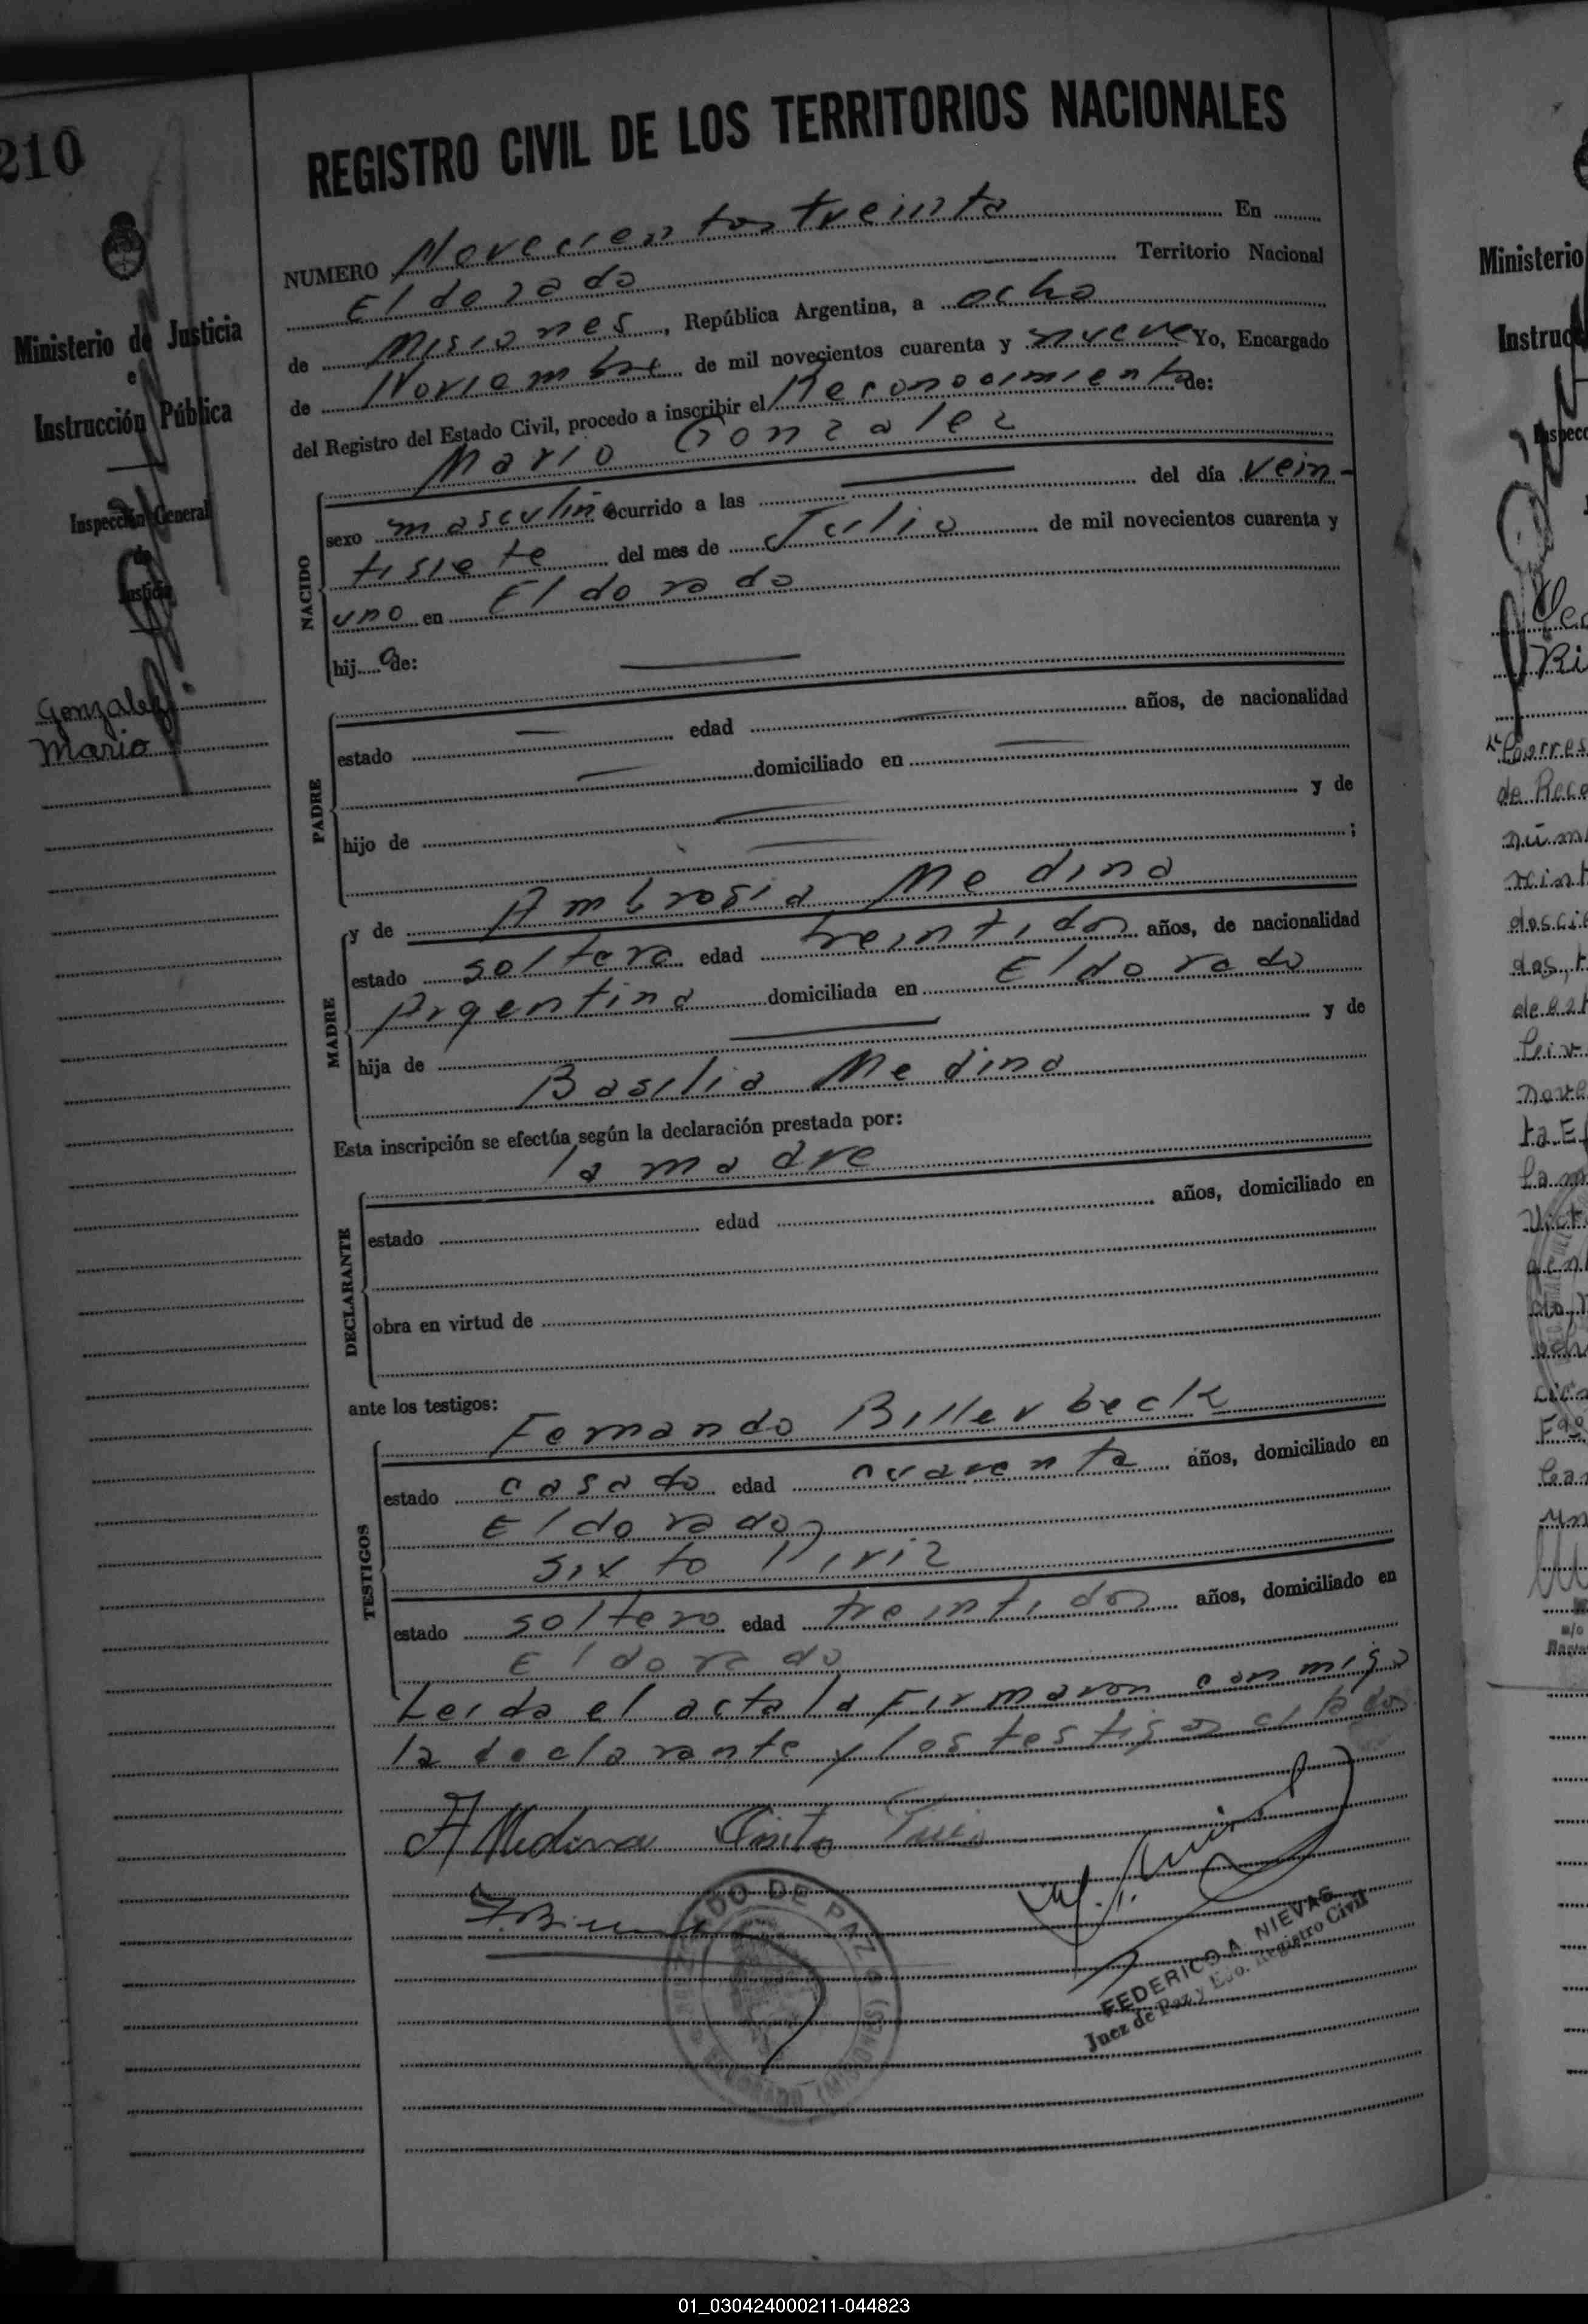 210
Ministerio de Justicia
e
Instrucción Pública
Inspección General
de
Justicia
Gonzalez
Mario
REGISTRO CIVIL DE LOS TERRITORIOS NACIONALES
NUMERO Novecientos treinta En
Eldorado Territorio Nacional
de Misiones, República Argentina, a ocho
de Noviembre de mil novecientos cuarenta y nueve Yo, Encargado
del Registro del Estado Civil, procedo a inscribir el Reconocimiento de:
Mario Gonzalez
NACIDO
sexo masculino ocurrido a las del día vein-
tisiete del mes de Julio de mil novecientos cuarenta y
uno en Eldorado
hijo de:
PADRE
estado edad años, de nacionalidad
domiciliado en
hijo de y de
;
MADRE
y de Ambrosia Medina
estado soltera edad treintidos años, de nacionalidad
Argentina domiciliada en Eldorado
hija de y de
Basilia Medina
Esta inscripción se efectúa según la declaración prestada por:
la madre
DECLARANTE
estado edad años, domiciliado en
obra en virtud de
ante los testigos:
TESTIGOS
Fernando Billerbeck
estado casado edad cuarenta años, domiciliado en
Eldorado
Sixto
estado soltero edad treintidos años, domiciliado en
Eldorado
Leida el acta la Firmaron conmigo
la declarante y los testigos citados
A Medina Sixto
FEDERICO A. NIEVAS
Juez de Paz y Eco. Registro Civil
JUZGADO DE PAZ
ELDORADO (MISIONES)
Ministerio
Instruc
Inspecc
01_030424000211-044823